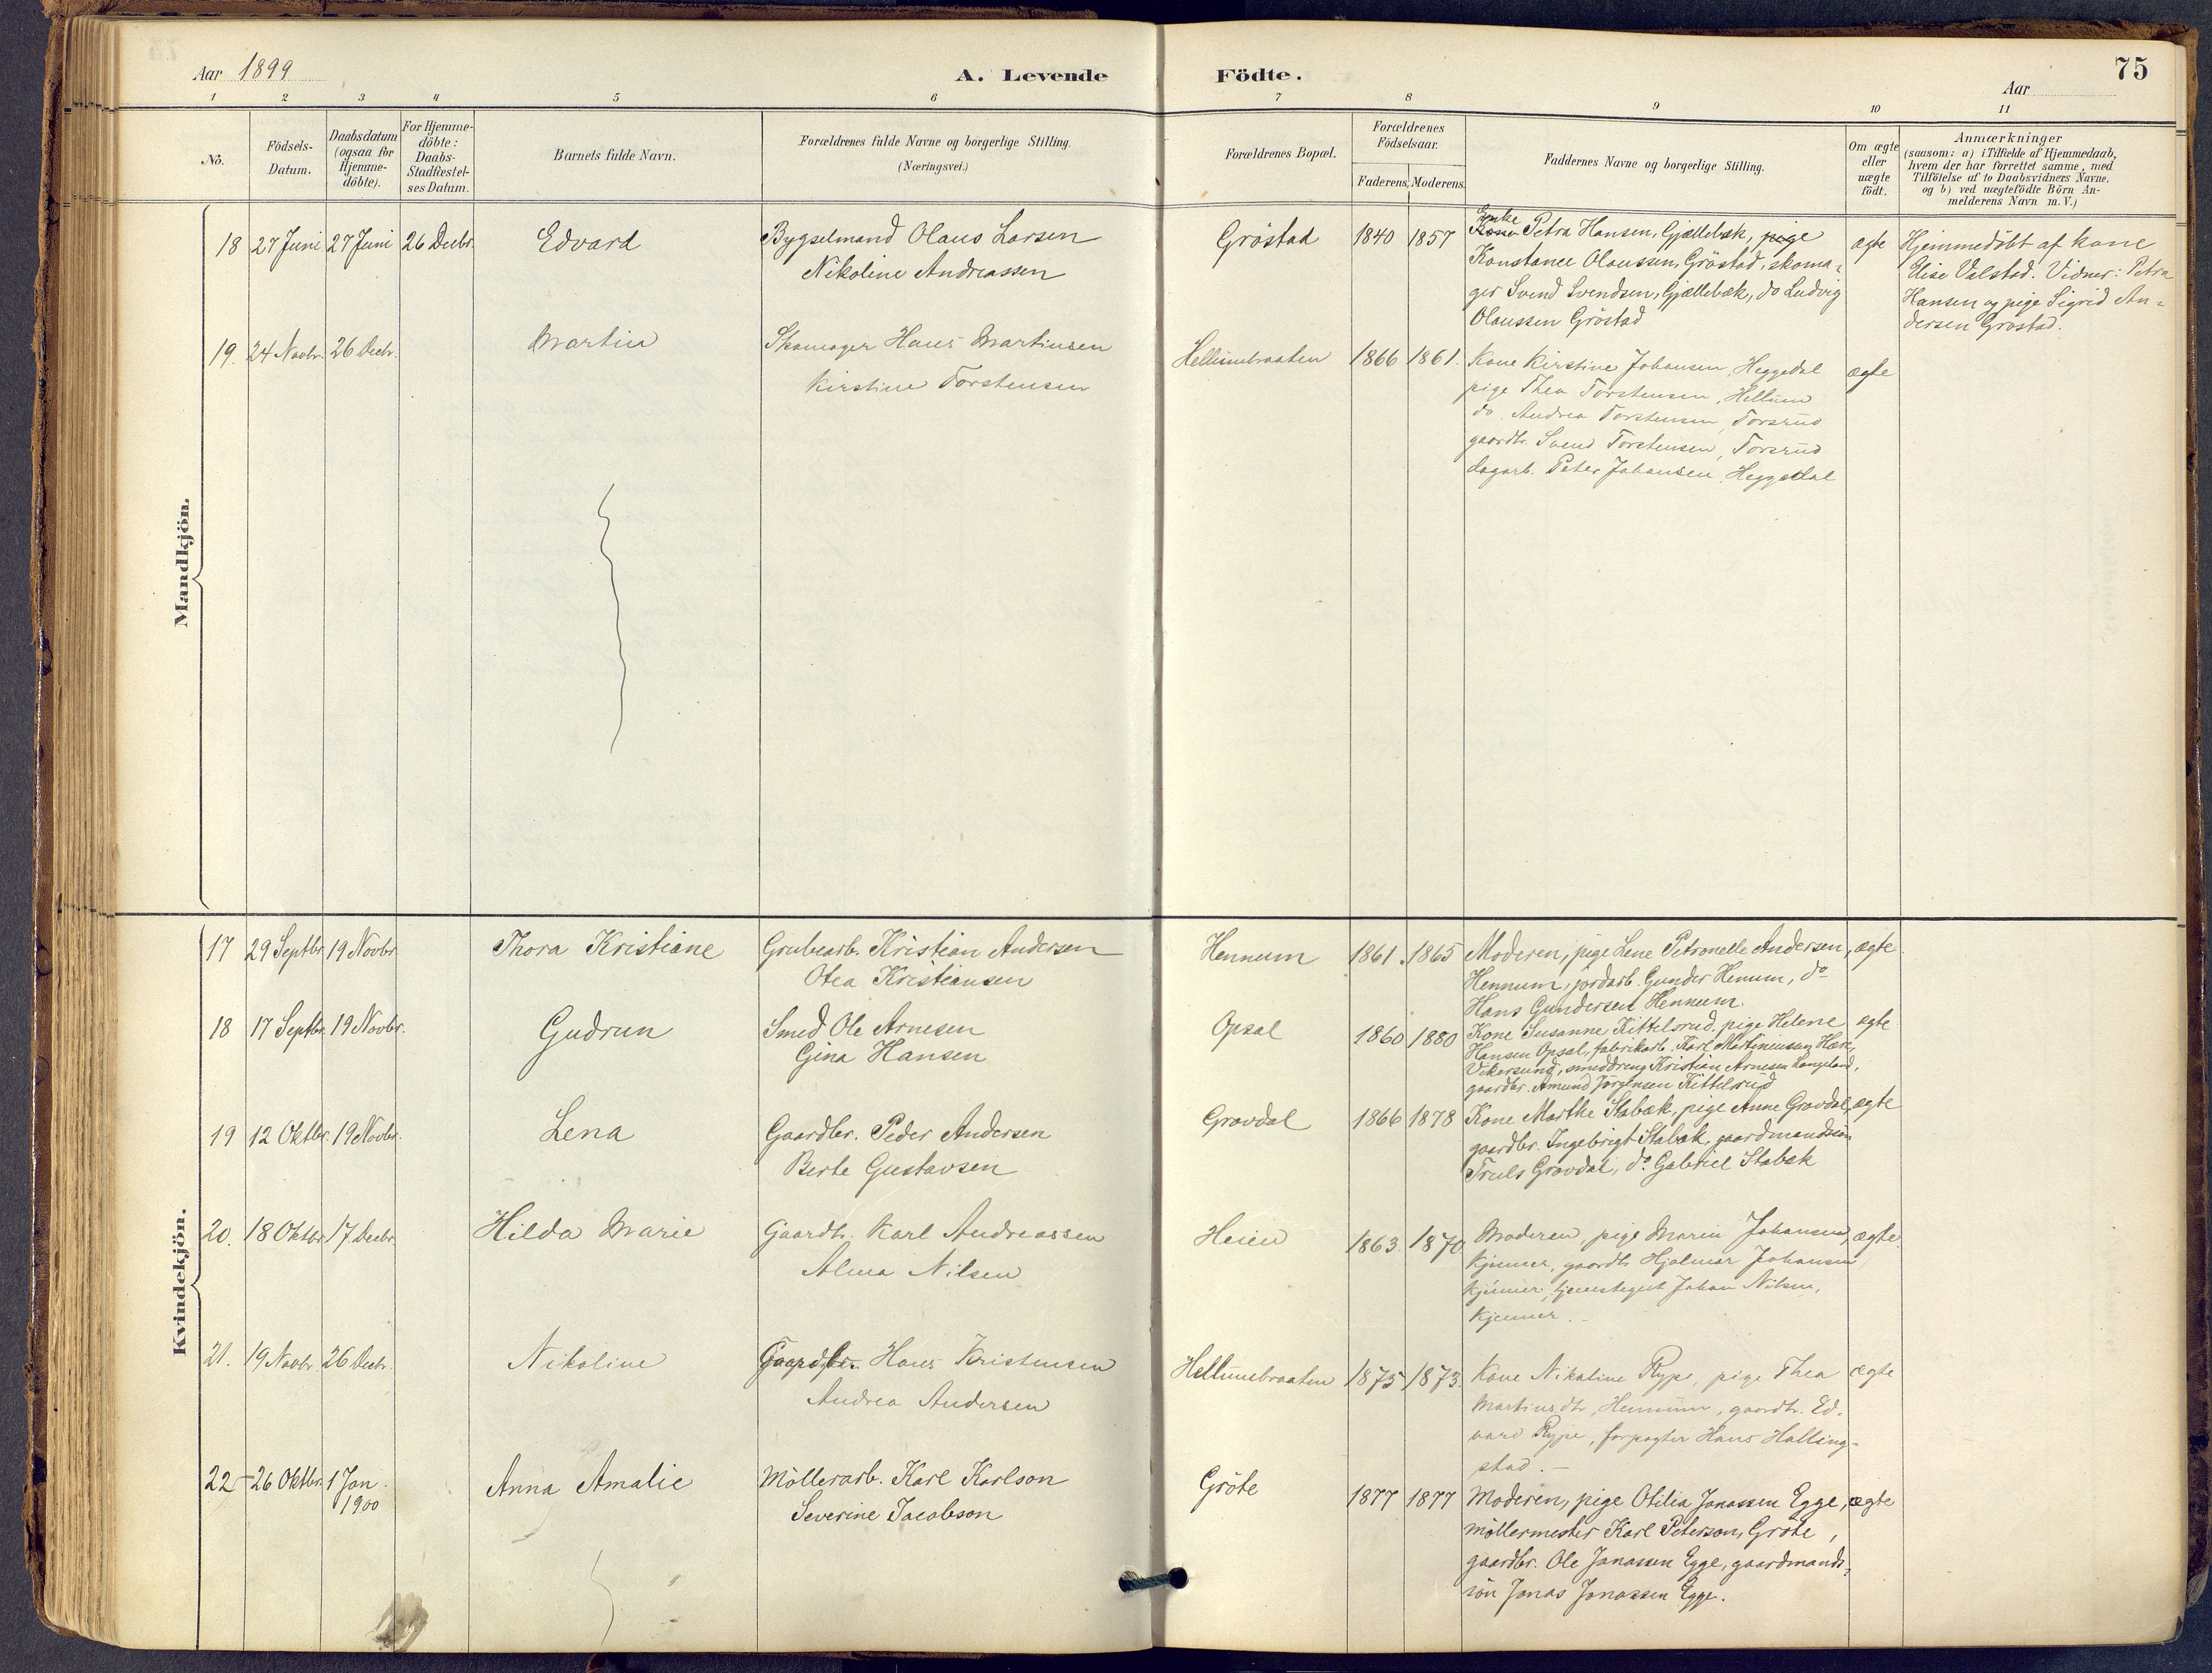 Aar 1899
A. Levende Födte.
Aar
75
1 2 3 4 5 6 7 8 9 10 11
No.
Födsels-
Datum.
Daabsdatum
(ogsaa for
Hjemme-
döbte).
For Hjemme-
döbte:
Daabs-
Stadfæstel-
ses Datum.
Barnets fulde Navn.
Forældrenes fulde Navne og borgerlige Stilling.
(Næringsvei.)
Forældrenes Bopæl.
Forældrenes
Födselsaar.
Faderens. Moderens.
Faddernes Navne og borgerlige Stilling.
Om ægte
eller
uægte
födt.
Anmærkninger
(saasom: a) i Tilfælde af Hjemmedaab,
hvem der har forrettet samme, med
Tilföielse af to Daabsvidners Navne.
og b) ved uægtefödte Börn An-
melderens Navn m. V.)
Mandkjön.
18 27 Juni 27 Juni 26 Decbr. Edvard
Bygselmand Olaus Larsen
Nikoline Andreassen
Gröstad 1840 1857
Enke
Kone Petra Hansen, Gjællebæk, pige
Konstance Olaussen, Gröstad, skoma-
ger Svend Svendsen, Gjællebæk, do Ludvig
Olaussen Gröstad
ægte
Hjemmedöbt af kone
Elise Valstad. Vidner: Petra
Hansen og pige Sigrid An-
dersen Gröstad.
19. 24 Novbr. 26 Decbr. Martin
Skomager Hans Martinsen
Kirstine Torstensen
Hellumbraaten 1866 1861.
Kone Kirstine Johansen, Heggedal
pige Thea Torstensen, Hellum
do. Andrea Torstensen, Torsrud
gaardbr. Svend Torstensen, Torsrud
dagarb. Peter Johansen Heggedal
ægte
Kvindekjön.
17 29 Septbr. 19 Novbr. Thora Kristiane
Grubearb. Kristian Andersen
Otea Kristiansen
Hennum 1861. 1865
Moderen, pige Lene Petronelle Andersen,
Hennum, jordarb. Gunder Henum, do
Hans Gundersen Hennum.
ægte
18 17 Septbr. 19 Novbr. Gudrun
Smed Ole Arnesen
Gina Hansen
Opsal 1860 1880
Kone Susanne Kittelsrud, pige Helene
Hansen Opsal, fabrikarb. Karl Martinussen Hære,
Vikersund, smeddreng Kristian Arnesen Langeland,
gaardbr. Amund Jörgensen Kittelsrud
ægte
19 12 Oktbr. 19 Novbr. Lena
Gaardbr. Peder Andersen
Berte Gustavsen
Grovdal 1866 1878
Kone Marthe Stabæk, pige Anne Grovdal,
gaardbr. Ingebrigt Stabæk, gaardmandssön
Truls Grovdal, do. Gabriel Stabæk
ægte
20. 18 Oktbr. 17 Decbr. Hilda Marie
Gaardb. Karl Andreassen
Alma Nilsen
Heien 1863. 1870
Moderen, pige Maren Johansen,
Kjenner, gaardb. Hjalmar Johansen
Kjenner, tjenestegut Johan Nilsen,
Kjenner.
ægte.
21. 19 Novbr. 26 Decbr. Nikoline
Gaardbr. Hans Kristensen
Andrea Andersen
Hellumbraaten 1875 1873.
Kone Nikoline Rype, pige Thea
Martinsdtr, Hennum, gaardb. Ed-
vard Rype, forpagter Hans Halling-
stad.
ægte
22 26 Oktbr. 1 Jan.
1900
Anna Amalie
Möllerarb. Karl Karlson
Severine Jacobson
Gröte 1877 1877
Moderen, pige Otilia Jonassen Egge,
möllermester Karl Peterson, Gröte,
gaardbr. Ole Jonassen Egge, gaardmands-
sön Jonas Jonassen Egge.
ægte